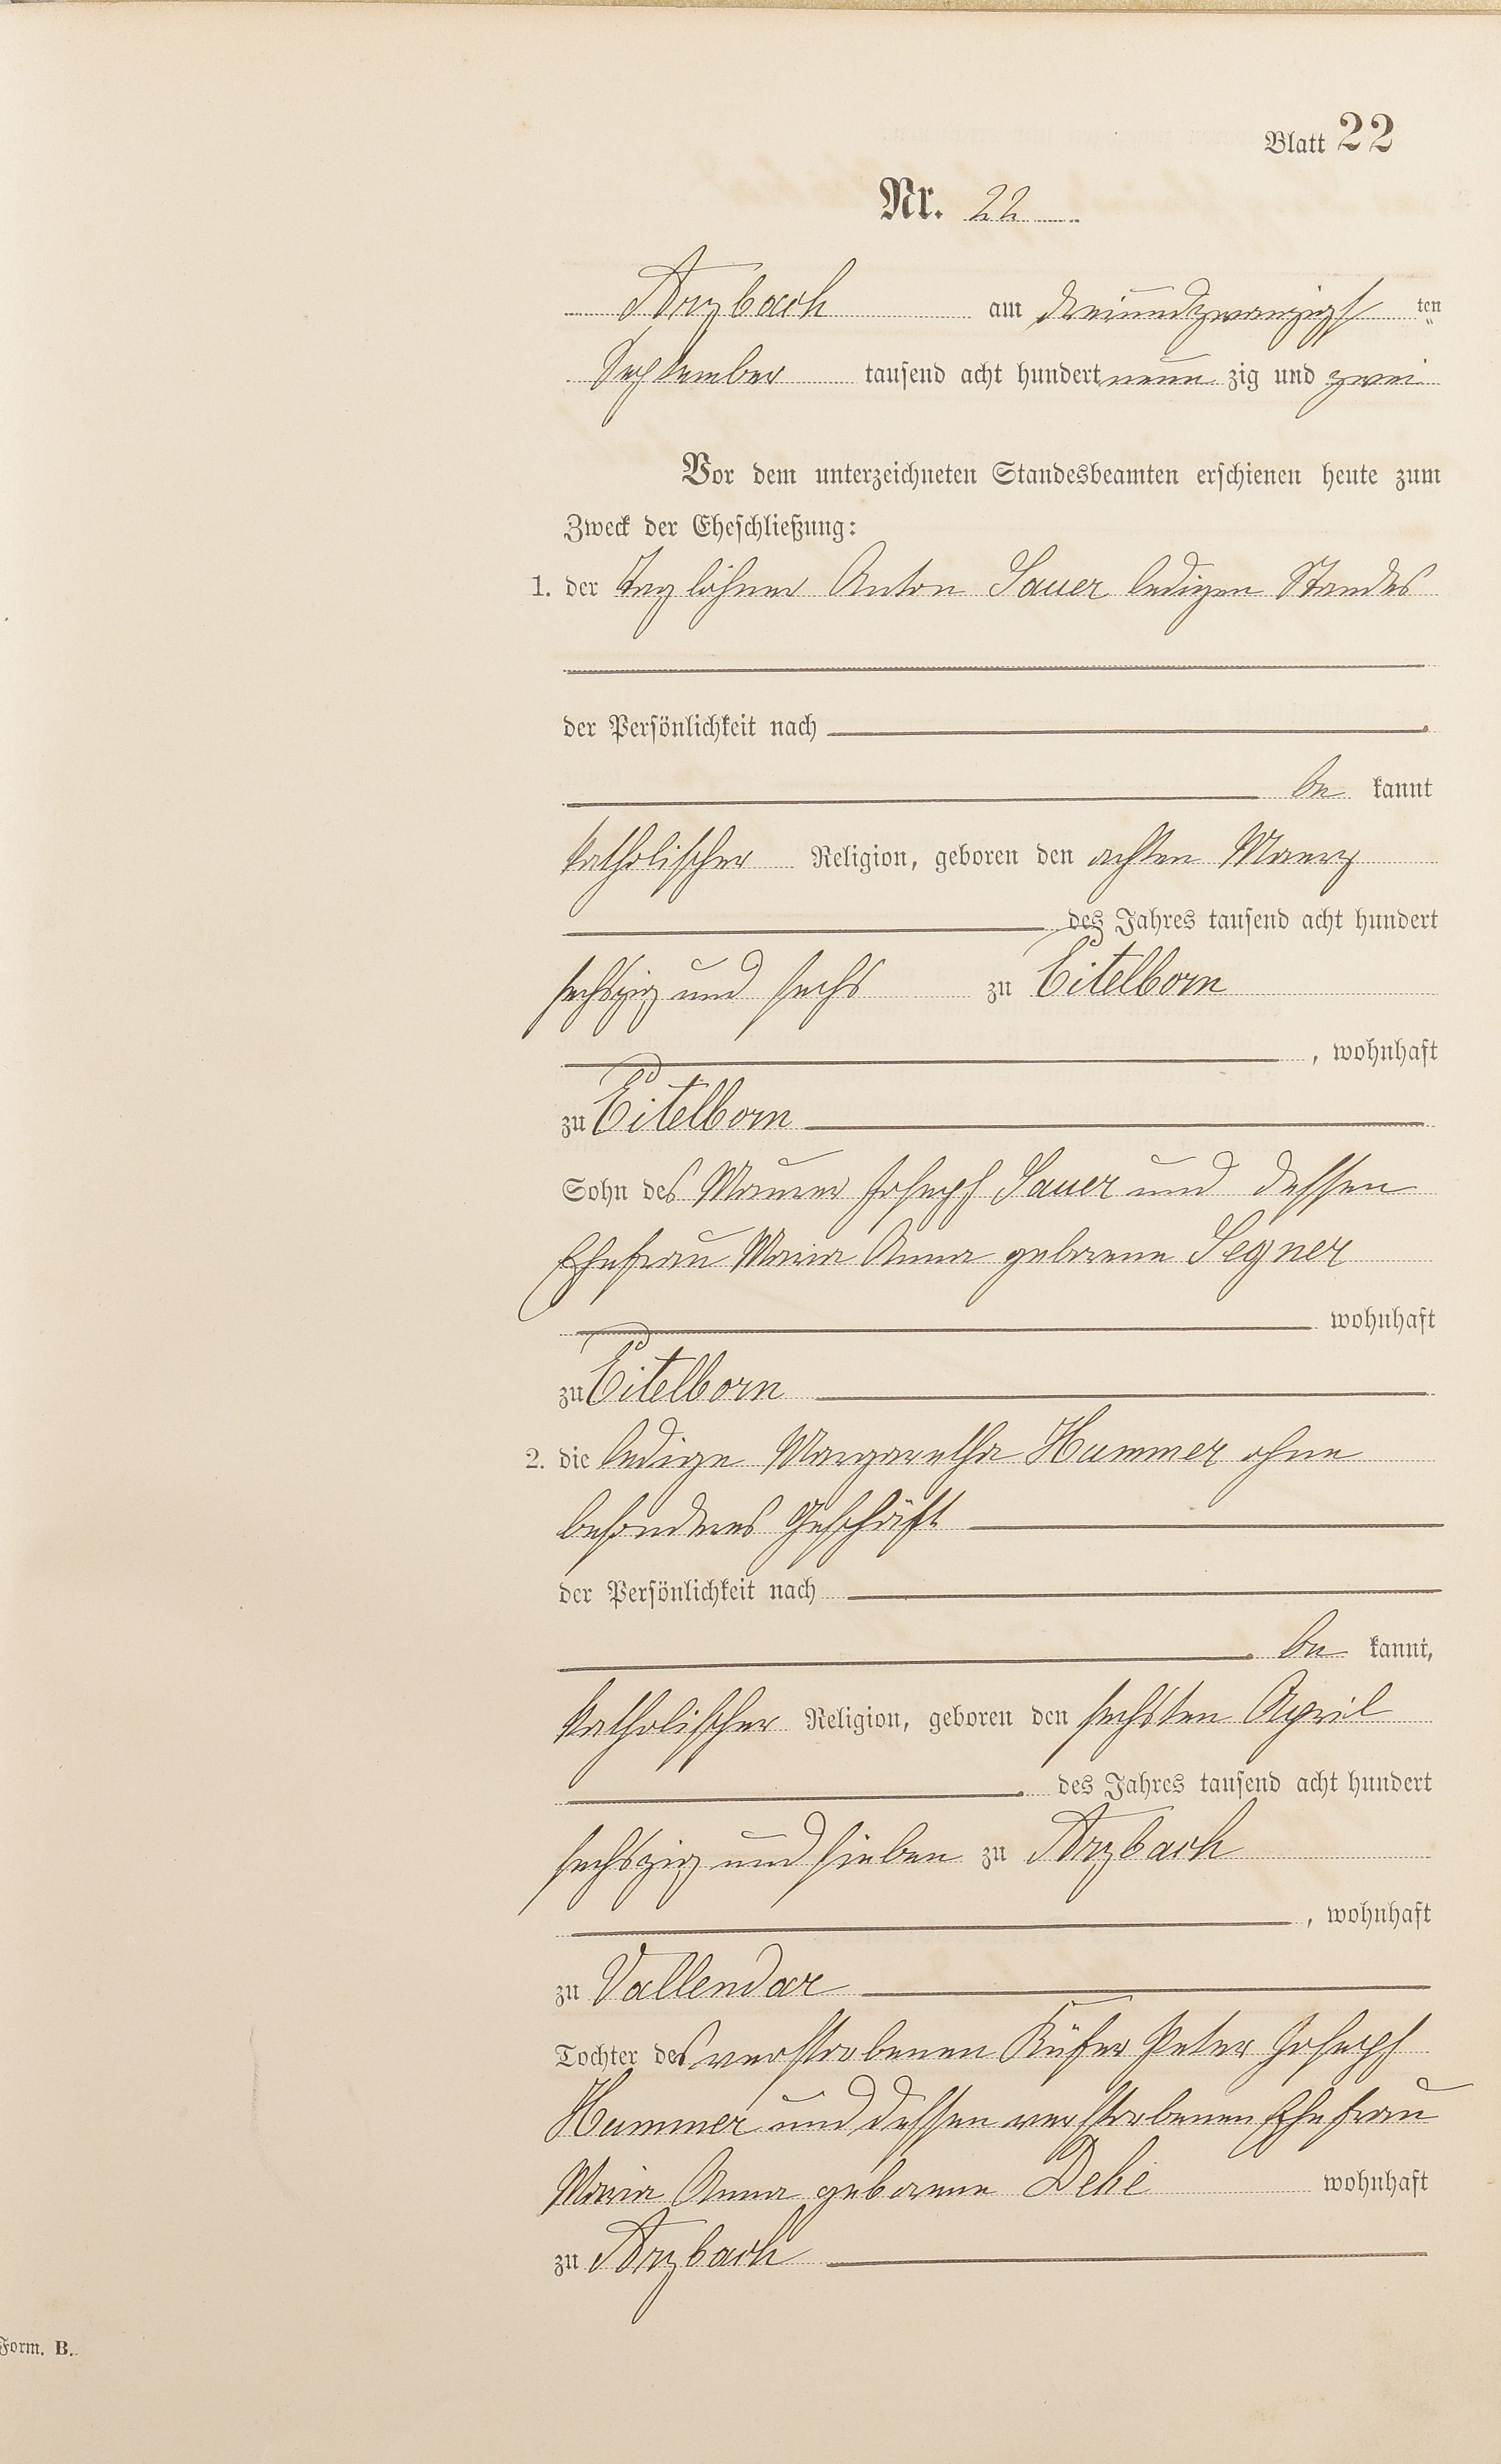 Blatt 22
Nr. 22
Arzbach am dreiundzwanzigst ten
September tausend acht hundert neun zig und zwei
Vor dem unterzeichneten Standesbeamten erschienen heute zum
Zweck der Eheschließung:
1. der Taglöhner Anton Sauer ledigen Standes
der Persönlichkeit nach
be kannt
katholischer Religion, geboren den achten Maerz
des Jahres tausend acht hundert
sechszig und sechs zu Eitelborn
, wohnhaft
zu Eitelborn
Sohn des Maurer Joseph Sauer und dessen
Ehefrau Maria Anna geborene Segner
wohnhaft
zu Eitelborn
2. die ledige Margaretha Hummer ohne
besonderes Geschäft
der Persönlichkeit nach
be kannt,
katholischer Religion, geboren den sechsten April
des Jahres tausend acht hundert
sechszig und sieben zu Arzbach
, wohnhaft
zu Vallendar
Tochter des verstorbenen Küfer Peter Joseph
Hummer und dessen verstorbenen Ehefrau
Maria Anna geborene Dehe wohnhaft
zu Arzbach
Form. B.